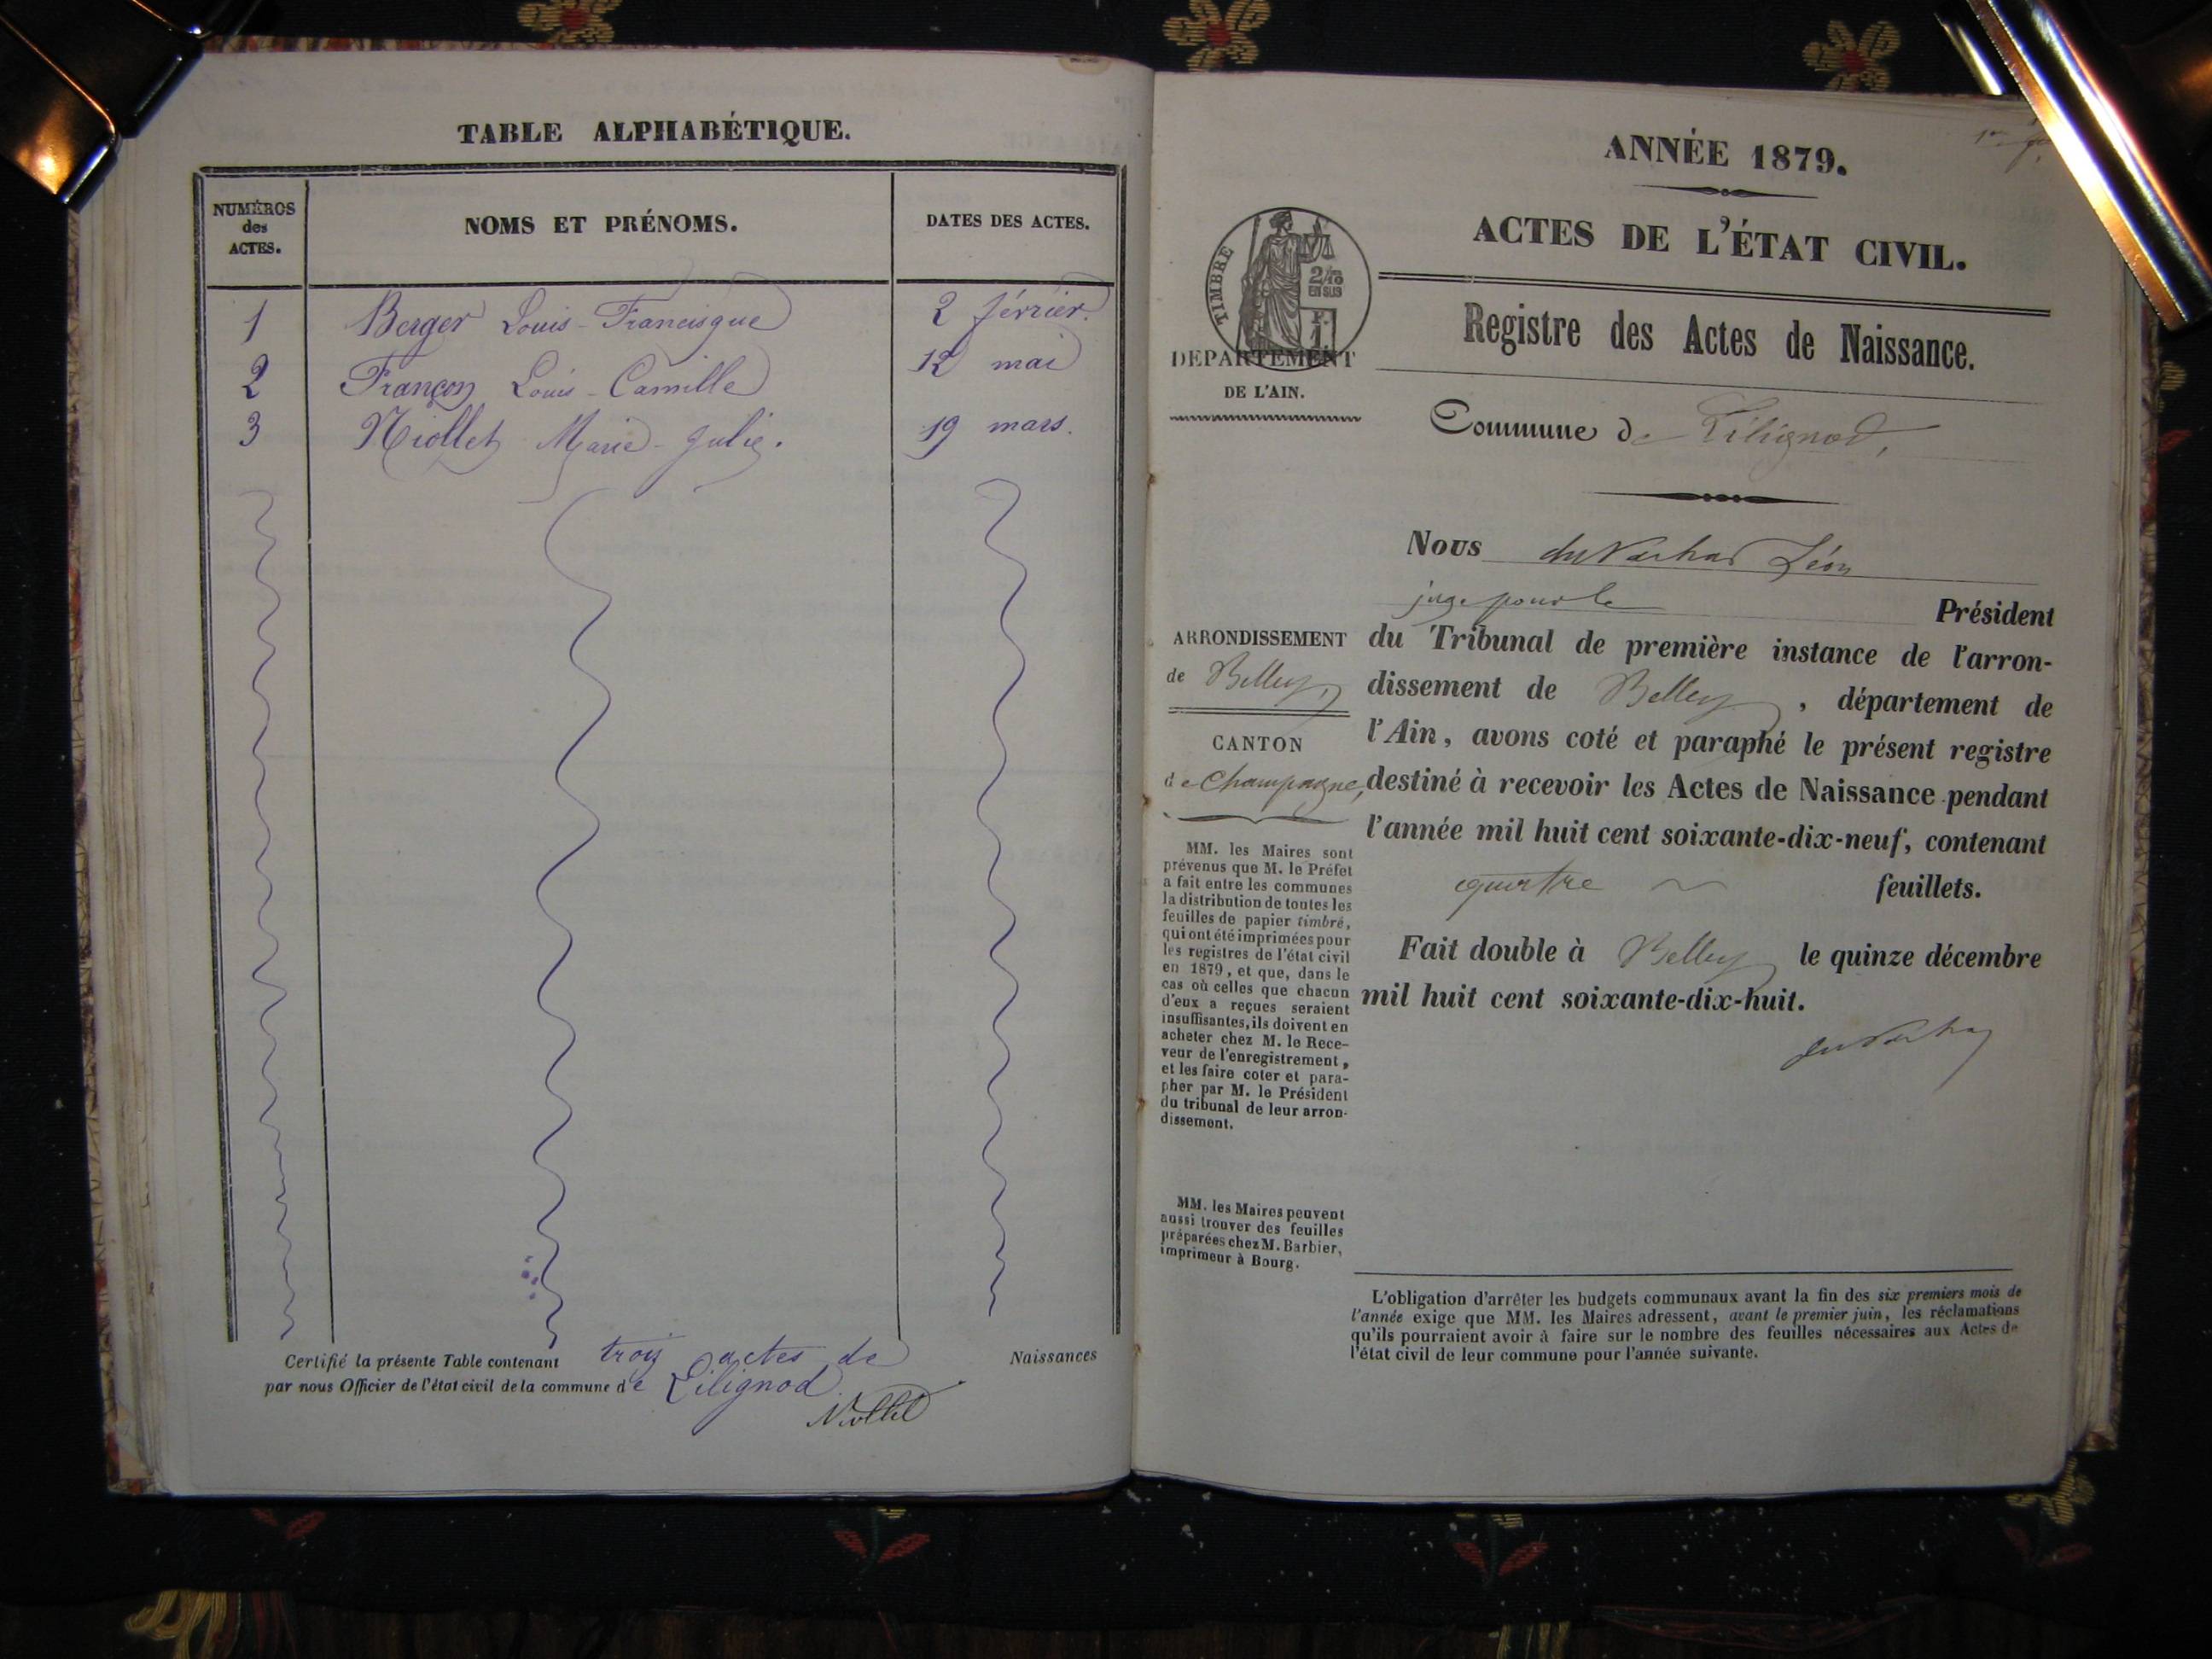 TABLE ALPHABÉTIQUE.
NUMÉROS
des
ACTES.
NOMS ET PRÉNOMS.
DATES DES ACTES.
1 Berger Louis-Francisque 2 février.
2 Françon Louis-Camille 12 mai
3 Niollet Marie-Julie. 19 mars.
Certifié la présente Table contenant trois actes de Naissances
par nous Officier de l'état civil de la commune de Lilignod.
Niollet
ANNÉE 1879.
ACTES DE L'ÉTAT CIVIL.
TIMBRE
2/10
EN SUS
DEPARTEMENT
DE L'AIN.
Registre des Actes de Naissance.
Commune de Lilignod,
ARRONDISSEMENT
de Belley,
CANTON
de Champagne,
MM. les Maires sont
prévenus que M. le Préfet
a fait entre les communes
la distribution de toutes les
feuilles de papier timbré,
qui ont été imprimées pour
les registres de l'état civil
en 1879, et que, dans le
cas où celles que chacun
d'eux a reçues seraient
insuffisantes, ils doivent en
acheter chez M. le Rece-
veur de l'enregistrement,
et les faire coter et para-
pher par M. le Président
du tribunal de leur arron-
dissement.
MM. les Maires peuvent
aussi trouver des feuilles
préparées chez M. Barbier,
imprimeur à Bourg.
Nous Léon
juge pour le Président
du Tribunal de première instance de l'arron-
dissement de Belley, département de
l'Ain, avons coté et paraphé le présent registre
destiné à recevoir les Actes de Naissance pendant
l'année mil huit cent soixante-dix-neuf, contenant
quatre feuillets.
Fait double à Belley le quinze décembre
mil huit cent soixante-dix-huit.
L'obligation d'arrêter les budgets communaux avant la fin des six premiers mois de
l'année exige que MM. les Maires adressent, avant le premier juin, les réclamations
qu'ils pourraient avoir à faire sur le nombre des feuilles nécessaires aux Actes de
l'état civil de leur commune pour l'année suivante.